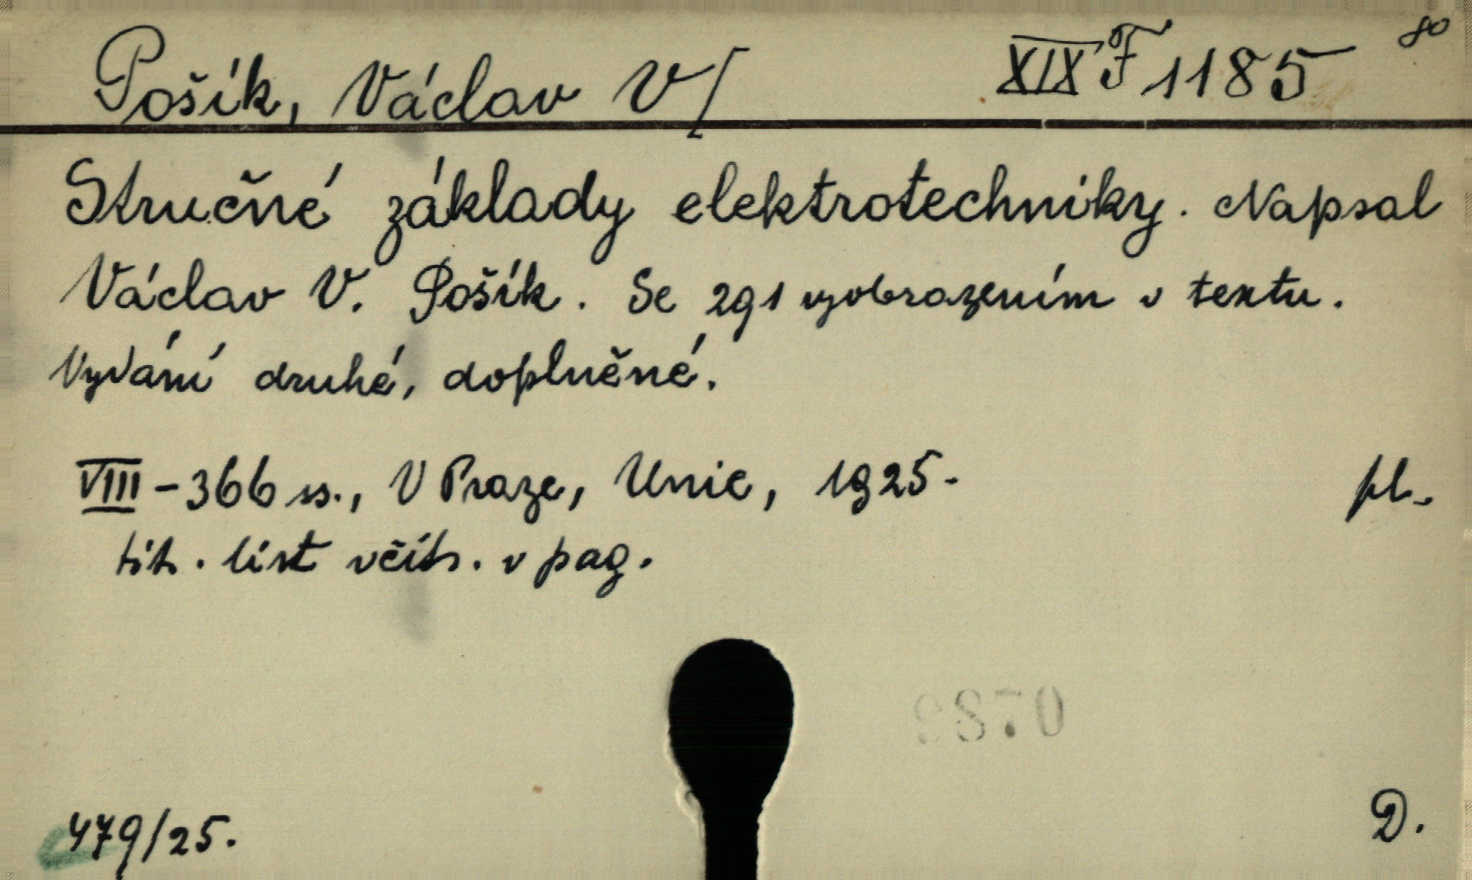 Pošík, Václav V/ XIX F 1185 80
Stručné základy elektrotechniky. Napsal
Václav V. Pošík. Se 291 vyobrazením v textu.
Vydání druhé, doplněné.
VIII - 366 ss., V Praze, Unie, 1925. pl.
tit. list včít. v pag.
9870
479/25. D.